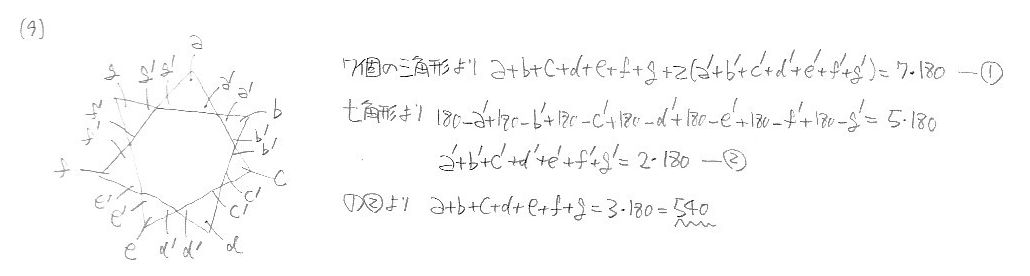 (4)
a
g g' g' a' a' b
f' f' b' b'
f c
e' e' c' c'
e d' d' d
7個の三角形より a+b+c+d+e+f+g+2(a'+b'+c'+d'+e'+f'+g')=7・180 ―①
七角形より 180-a'+180-b'+180-c'+180-d'+180-e'+180-f'+180-g'=5・180
a'+b'+c'+d'+e'+f'+g'=2・180 ―②
①②より a+b+c+d+e+f+g=3・180=540